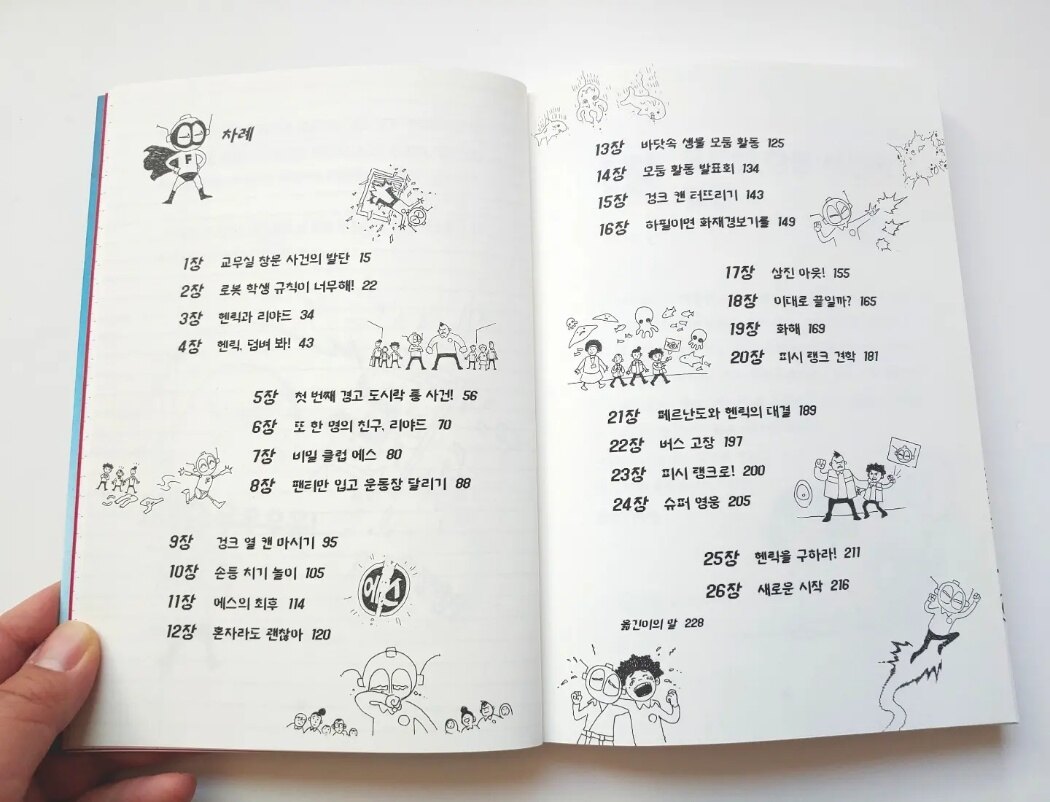 차례
F
1장 교무실 창문 사건의 발단 15
2장 로봇 학생 규칙이 너무해! 22
3장 헨릭과 리야드 34
4장 헨릭, 덤벼 봐! 43
5장 첫 번째 경고 도시락 통 사건! 56
6장 또 한 명의 친구, 리야드 70
7장 비밀 클럽 에스 80
8장 팬티만 입고 운동장 달리기 88
9장 겅크 열 캔 마시기 95
10장 손등 치기 놀이 105
11장 에스의 최후 114
12장 혼자라도 괜찮아 120
에스
13장 바닷속 생물 모둠 활동 125
14장 모둠 활동 발표회 134
15장 겅크 캔 터뜨리기 143
16장 하필이면 화재경보기를 149
17장 삼진 아웃! 155
18장 이대로 끝일까? 165
19장 화해 169
20장 피시 탱크 견학 181
21장 페르난도와 헨릭의 대결 189
22장 버스 고장 197
23장 피시 탱크로! 200
24장 슈퍼 영웅 205
25장 헨릭을 구하라! 211
26장 새로운 시작 216
옮긴이의 말 228